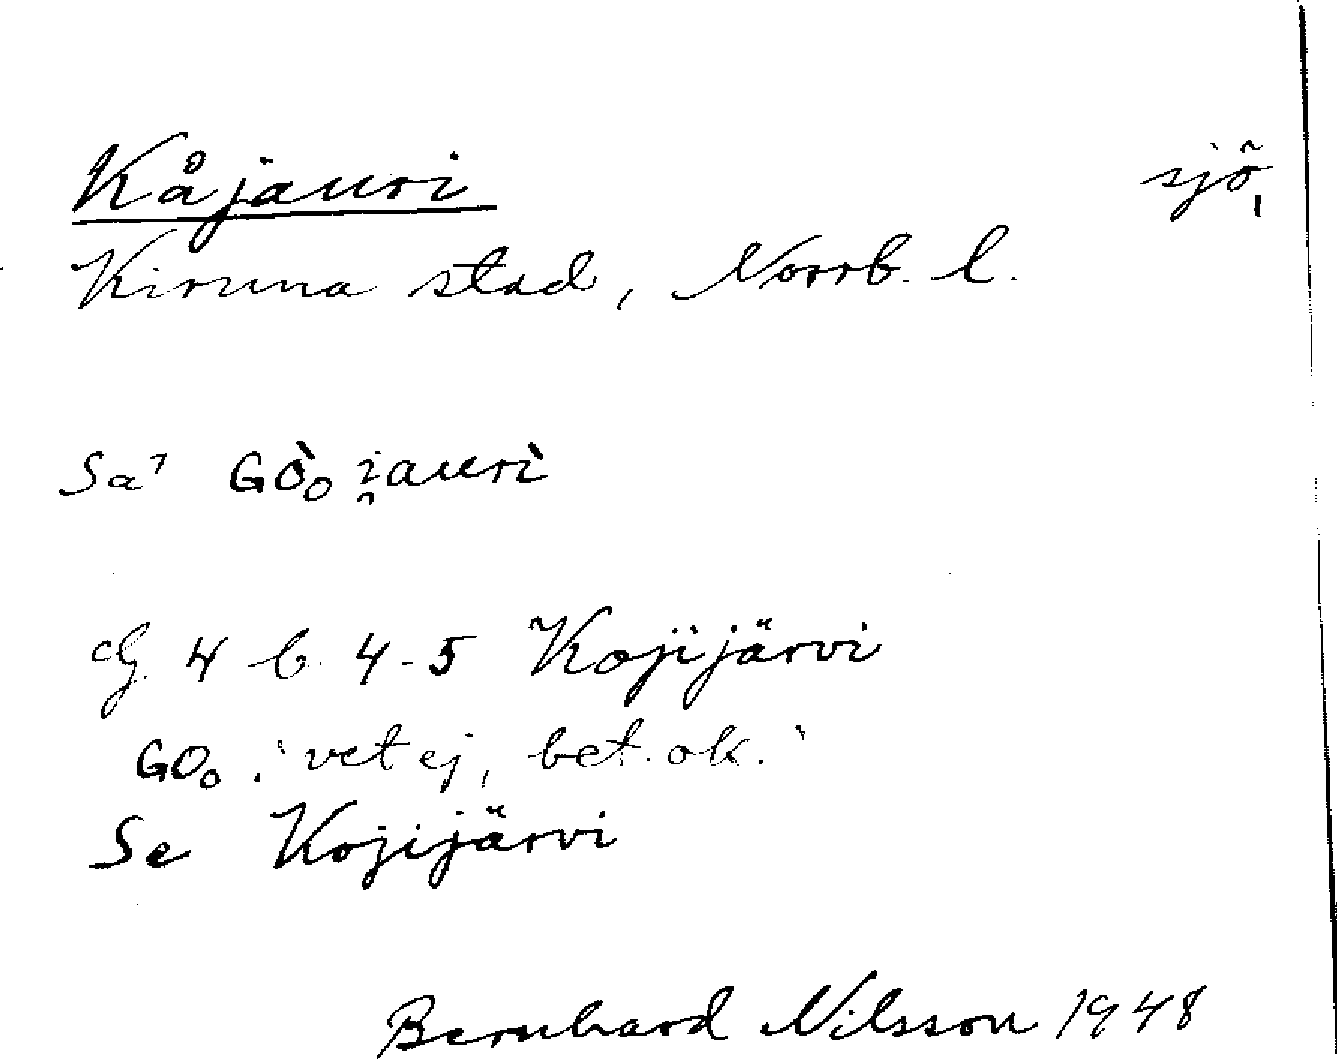 Kåjauri sjö,
Kiruna stad, Norrb. l.
Sa' GÒ₀i̯aurì
G. 4 b. 4-5 Kojijärvi
GO₀ : vet ej, bet. ok.
Se Kojijärvi
Bernhard Nilsson 1948